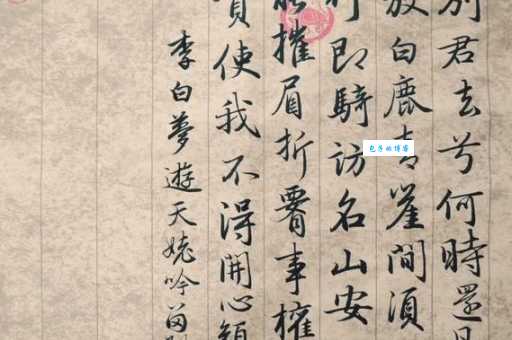 別君去兮何時還且
放白鹿青崖間須
行即騎訪名山安
能摧眉折腰事權
貴使我不得開心顏
李白夢遊天姥吟留別
包子的博客